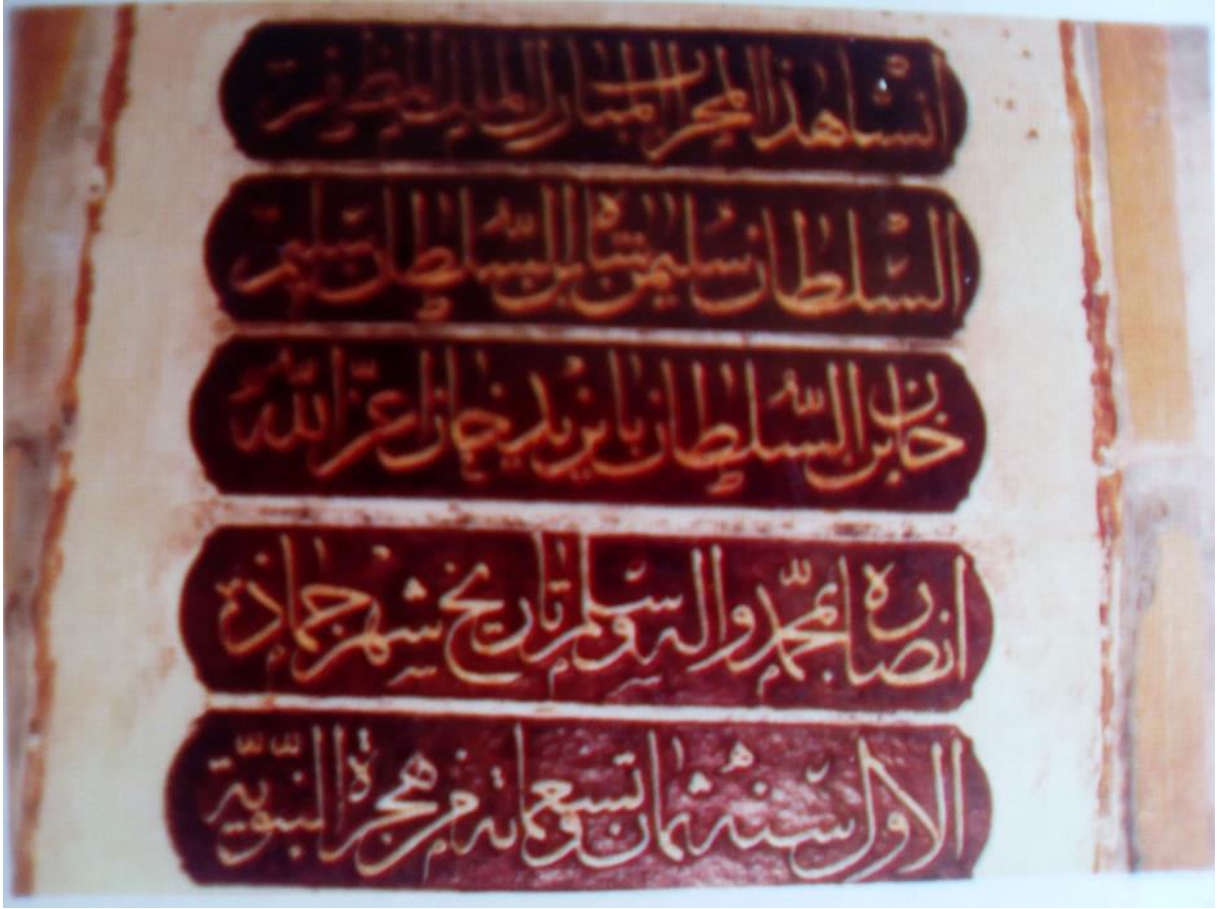 انشا هذا المحراب المبارك الملك المظفر
السلطان سليمن شاه ابن السلطان سليم
خان ابن السلطان بايزيد خان اعز الله
انصاره بمحمد واله وسلم تاريخ شهر جماد
الاول سنة ثمان وتسعماية من هجرة النبوية